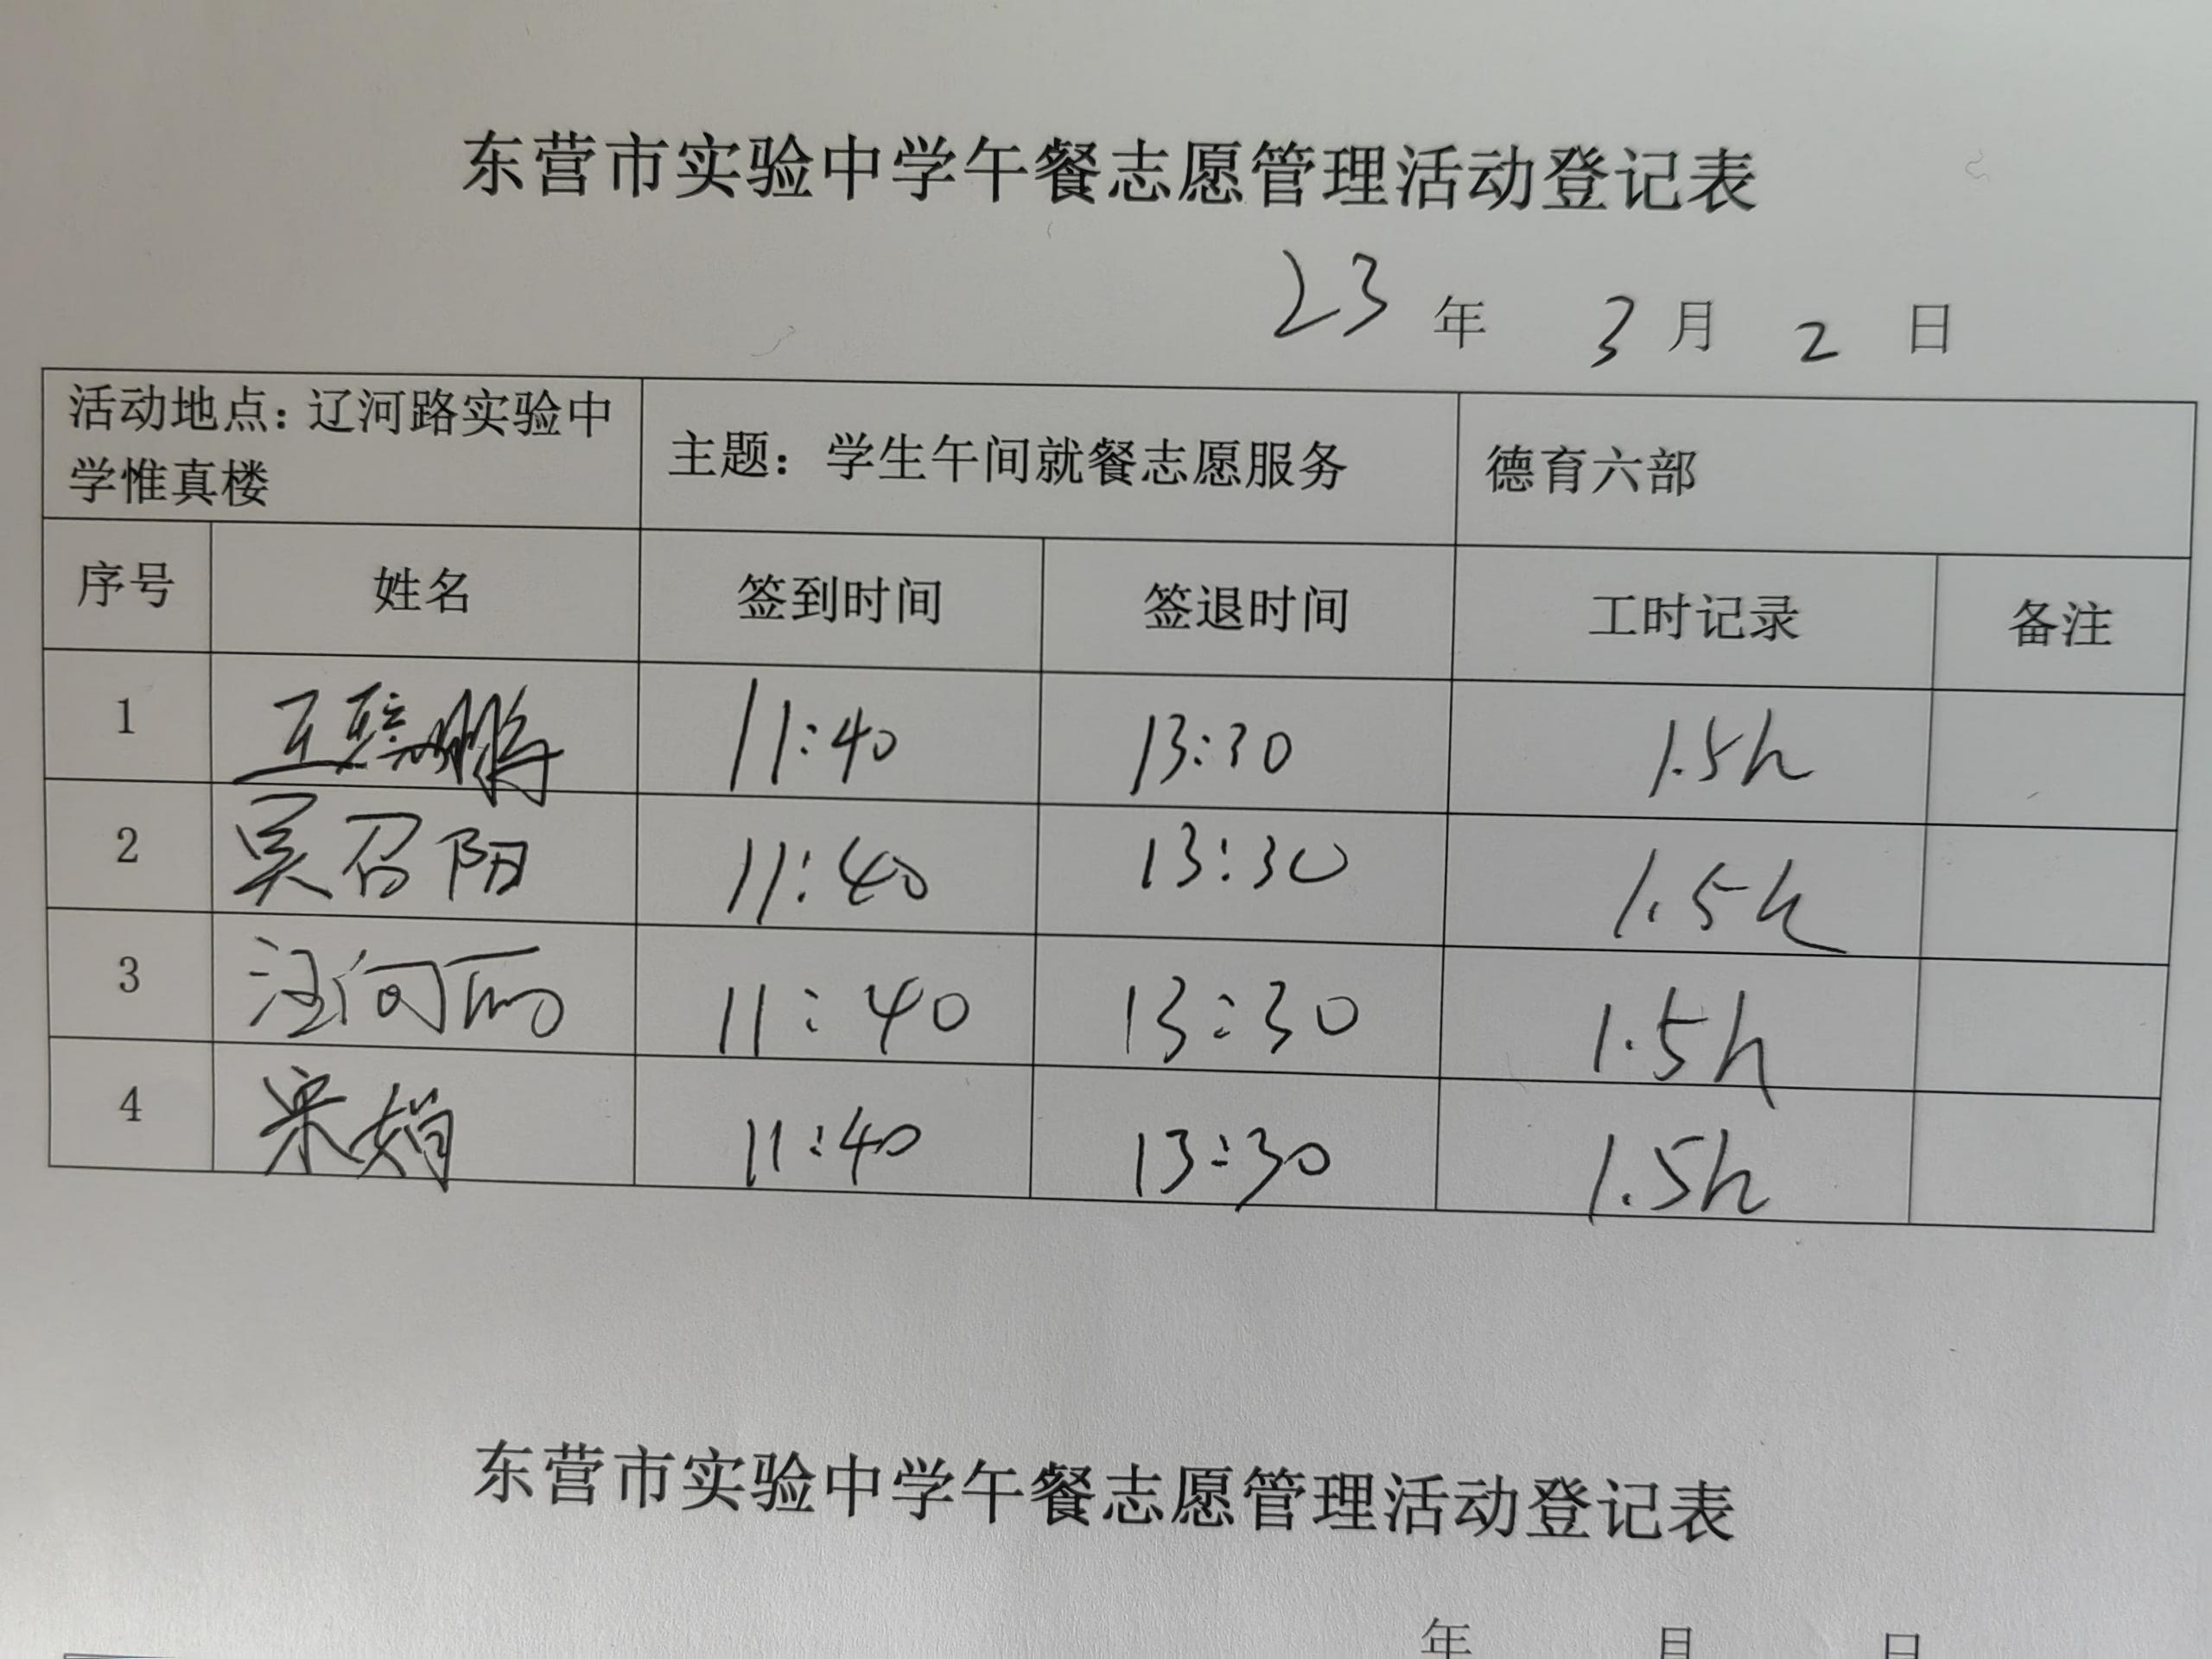 东营市实验中学午餐志愿管理活动登记表
23 年 3 月 2 日
活动地点：辽河路实验中
学惟真楼
主题：学生午间就餐志愿服务
德育六部
序号 姓名 签到时间 签退时间 工时记录 备注
1 11:40 13:30 1.5h
2 吴召阳 11:40 13:30 1.5h
3 11:40 13:30 1.5h
4 宋娟 11:40 13:30 1.5h
东营市实验中学午餐志愿管理活动登记表
年 月 日